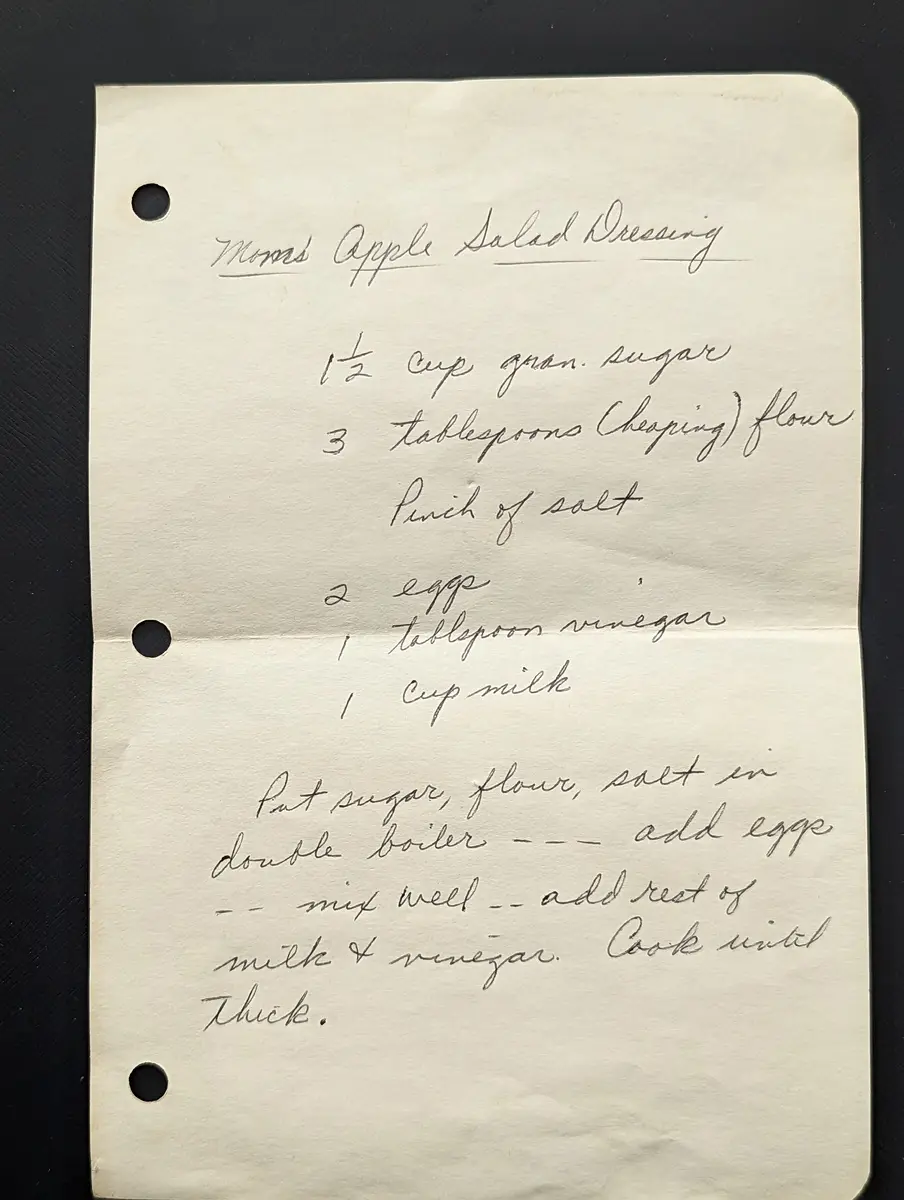 Moms' Apple Salad Dressing
1 1/2 cup gran. sugar
3 tablespoons (heaping) flour
Pinch of salt
2 eggs
1 tablspoon vinegar
1 cup milk
Put sugar, flour, salt in
double boiler --- add eggs
-- mix well -- add rest of
milk & vinegar. Cook until
thick.